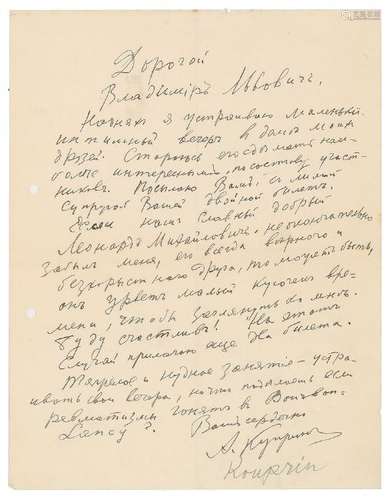 Дорогой
Владимиръ Львовичъ,
Начняхъ я устраиваю маленьк.
интимный вечеръ в домѣ моихъ
друзей. Стараюсь его сдѣлать наи-
болѣе интереснымъ, по составу участ-
никовъ. Посылаю Вамъ, с милой
супругой Вашей двойной билетъ.
Если нашъ славный добрый
Леонардъ Михайловичъ, неокончательно
забылъ меня, его всегда вѣрного и
безкорыстного друга, то можетъ быть,
онъ урветъ малый кусочекъ вре-
мени, чтобы заглянуть ко мнѣ.
Буду счастливъ! На этотъ
случай прилагаю еще два билета.
Тяжелое и нудное занятіе - устра-
ивать свои вечера, но что подѣлаешь если
ревматизмы гонятъ в
Lancy?
Вашъ сердечно
А. Купринъ
Kouprin